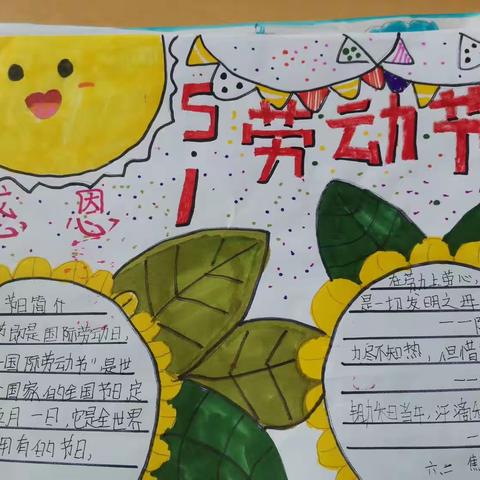 5.1
劳动节
感恩
节日简介
即是国际劳动日,
国际劳动节"是世
国家的全国节日,定
五月一日,它是全世界
拥有的节日,
在劳力上劳心,
是一切发明之母
力尽不知热,但惜
日当午,汗滴
六二 焦